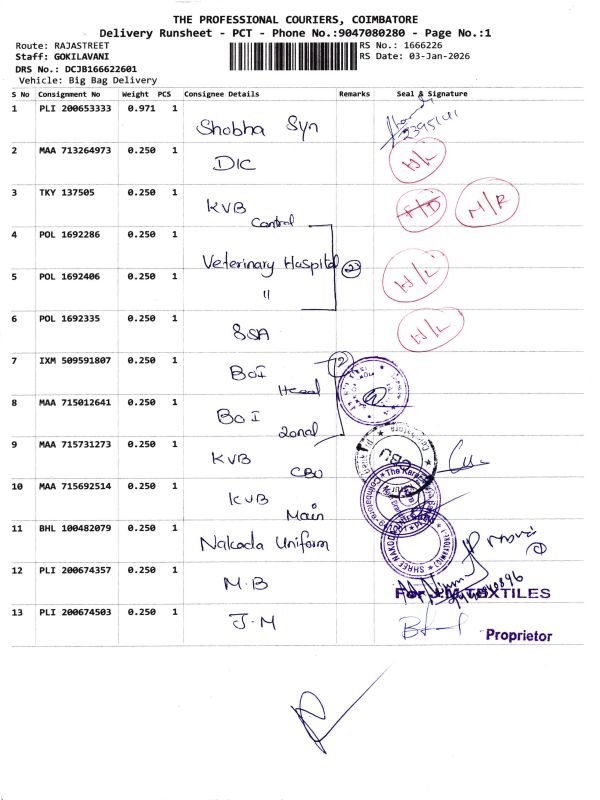 THE PROFESSIONAL COURIERS, COIMBATORE
Delivery Runsheet - PCT - Phone No.:9047080280 - Page No.:1
Route: RAJASTREET RS No.: 1666226
Staff: GOKILAVANI RS Date: 03-Jan-2026
DRS No.: DCJB166622601
Vehicle: Big Bag Delivery
S No Consignment No Weight PCS Consignee Details Remarks Seal & Signature
1 PLI 200653333 0.971 1 Shobha Syn
2 MAA 713264973 0.250 1 DIC H/L
3 TKY 137505 0.250 1 KVB Central M/R
4 POL 1692286 0.250 1 Veterinary Hospital 23 H/L
5 POL 1692406 0.250 1 "
6 POL 1692335 0.250 1 SSA H/L
7 IXM 509591807 0.250 1 BOI Head 12
8 MAA 715012641 0.250 1 BOI Zonal
9 MAA 715731273 0.250 1 KVB CBU CBU
10 MAA 715692514 0.250 1 KVB Main
11 BHL 100482079 0.250 1 Nakoda Uniform SHREE NAKOD
12 PLI 200674357 0.250 1 M.B
For J.M.TEXTILES
13 PLI 200674503 0.250 1 J.M
Proprietor